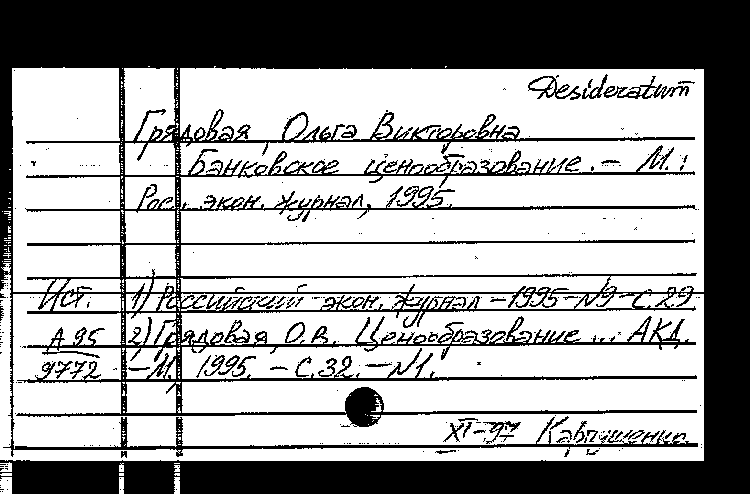 Desideratum
Грядовая, Ольга Викторовна
Банковское ценообразование. – М.:
Рос. экон. журнал, 1995.
Ист. 1) Российский экон. журнал – 1995 – №9 – С. 29
А 95 2) Грядовая, О.В. Ценообразование ... АКД.
9772 – М., 1995. – С. 32. – №1.
XI-97 Карпушенко